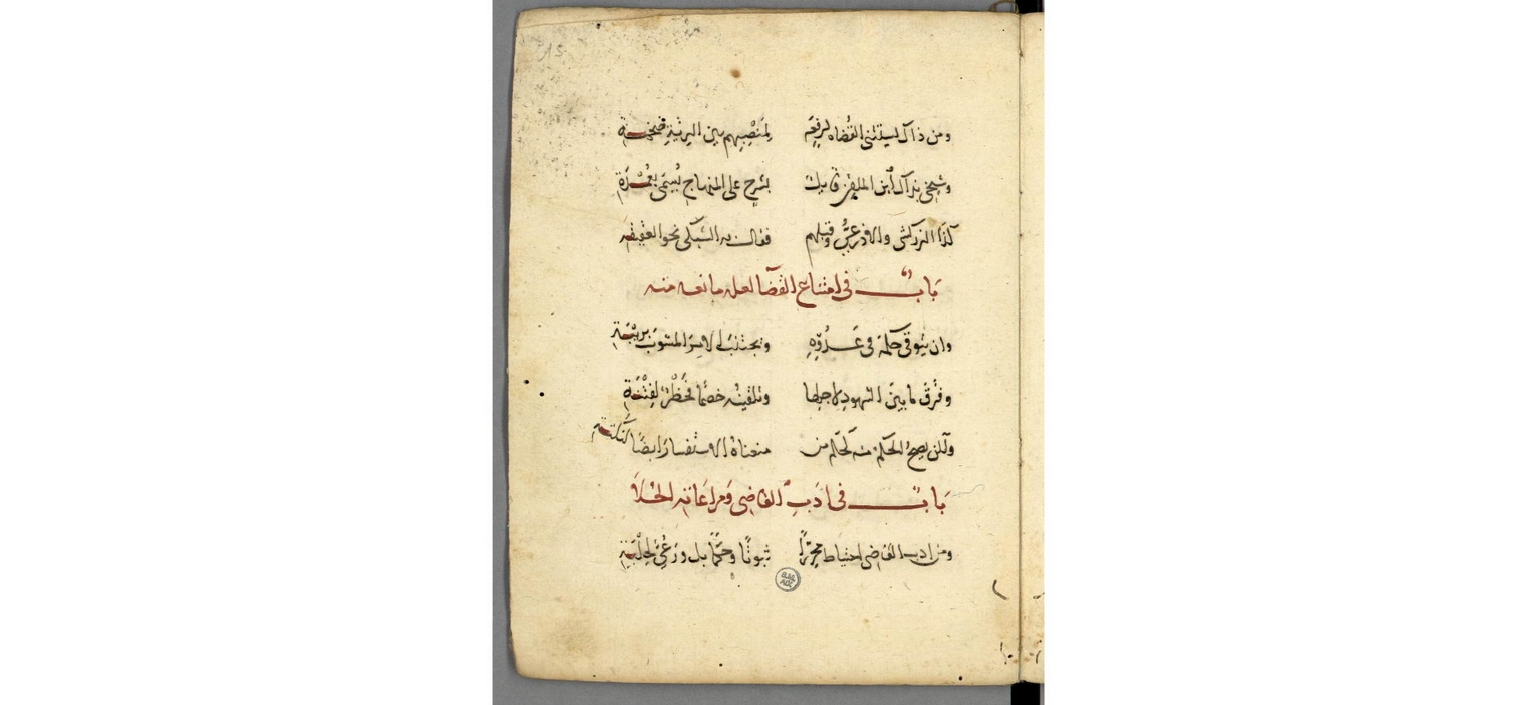 ومن ذاك يستثنى القضاة لرفعهم لمنصبهم بين البرية ضخمة
وشيخي بذاك ابن الملقن قايل بشرح على المنهاج يسمى بعمدة
كذا الزركشي والاذرعي وقبلهم فقال به السبكي نحو العقيقة
باب في امتناع القضا لعله مانعه منه
وان يتوقى حكمه في عدوه ويجتنب الامر المشوب بريبة
وفرق ما بين الشهود لاجلها وتلقينه خصما فحظر لفتنة
ولكن يصح الحكم منه كحكم من منعناه الاستفسار ايضا
باب في ادب القاضي ومراعاته الخلا
ومن ادب القاضي احتياط محررا ثبوتا وحكما بل ورعي